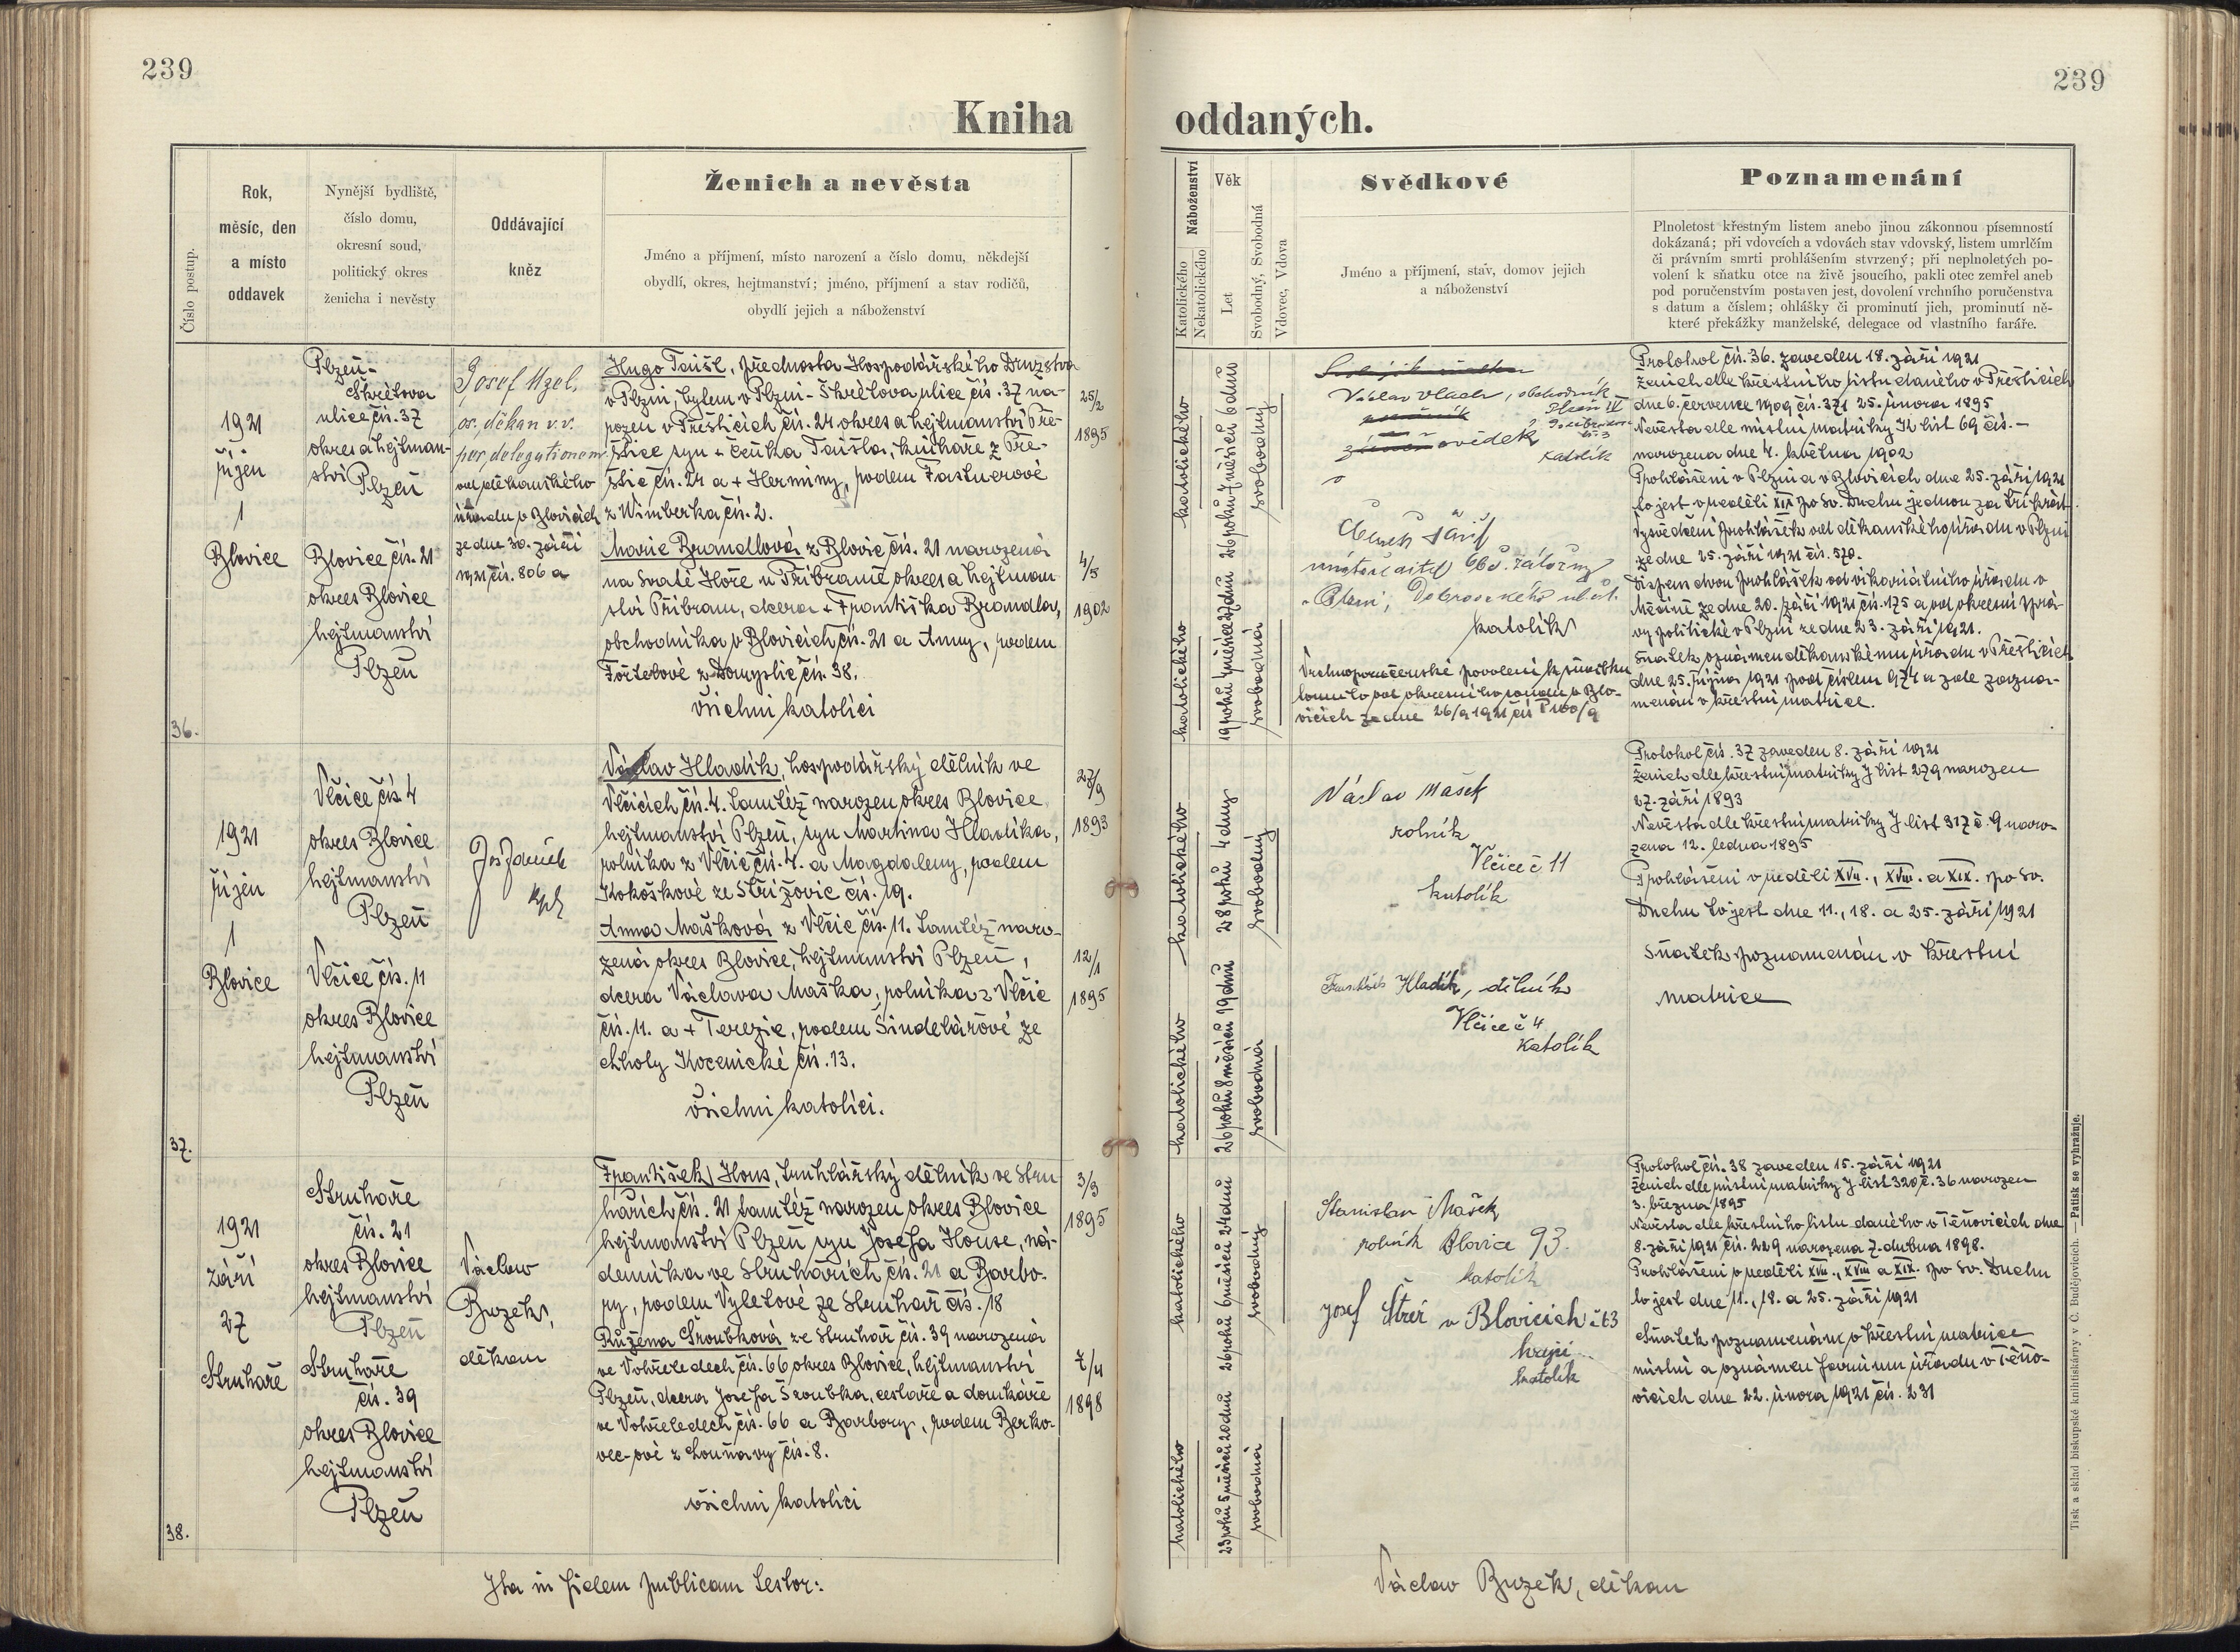 239
239
Kniha oddaných.
Číslo postup.
Rok,
měsíc, den
a místo
oddavek
Nynější bydliště,
číslo domu,
okresní soud,
politický okres
ženicha i nevěsty
Oddávající
kněz
Ženich a nevěsta
Jméno a příjmení, místo narození a číslo domu, někdejší
obydlí, okres, hejtmanství; jméno, příjmení a stav rodičů,
obydlí jejich a náboženství
Náboženství
Katolického
Nekatolického
Věk
Let
Svobodný, Svobodná
Vdovec, Vdova
Svědkové
Jméno a příjmení, stav, domov jejich
a náboženství
Poznamenání
Plnoletost křestným listem anebo jinou zákonnou písemností
dokázaná; při vdovcích a vdovách stav vdovský, listem umrlčím
či právním smrti prohlášením stvrzený; při neplnoletých po-
volení k sňatku otce na živě jsoucího, pakli otec zemřel aneb
pod poručenstvím postaven jest, dovolení vrchního poručenstva
s datum a číslem; ohlášky či prominutí jich, prominutí ně-
které překážky manželské, delegace od vlastního faráře.
36.
1921
říjen
1
Blovice
Plzeň-
Škrétova
ulice čís. 37
okres a hejtman-
ství Plzeň
Blovice čís. 21
okres Blovice
hejtmanství
Plzeň
Josef
os. děkan v.v.
per delegationem
od děkanského
úřadu v Blovicích
ze dne 30. září
1921 čís. 806 a
Hugo Taišl, přednosta Hospodářského Družstva
v Plzni, bytem v Plzni-Škrétova ulice čís. 37 na-
rozen v Přešticích čís. 24 okres a hejtmanství Pře-
štice syn + Čeňka Taišla, knihaře z Pře-
štic čís. 24 a + Herminy, rodem Fastnerové
z Wimberka čís. 2.
25/2
1895
Marie Brandlová z Blovic čís. 21 narozená
na Svaté Hoře u Příbramě okres a hejtman
ství Příbram, dcera + Františka Brandla,
obchodníka v Blovicích čís. 21 a Anny, rodem
Fořtelové z Domyslic čís. 38.
všichni katolíci
4/5
1902
katolického
26 roků 7 měsíců 6 dnů
svobodný
katolického
19 roků 4 měsíce 27 dnů
svobodná
Václav Vlach, obchodník
Plzeň IV
svědek
katolík
Čeněk Taišl
účetní Obč. záložny
v Plzni, Dobrovského ul.
katolík
Vrchnoporučenské povolení k sňatku
od okresního soudu v Blo-
vicích ze dne 26/9 1921 čís P 100/9
Protokol čís. 36. zaveden 18. září 1921
Ženich dle křestního listu daného v Přešticích
dne 6. července 1909 čís. 371 25. února 1895
Nevěsta dle místní matriky K list 69 čís. -
narozena dne 4. května 1902
Prohlášeni v Plzni a v Blovicích dne 25. září 1921
to jest v neděli XIX po Sv. Duchu jednou za třikrát
Vysvědčení prohlášek od děkanského úřadu v Plzni
ze dne 25. září 1921 čís. 570.
Dispens dvou prohlášek od vikariátního úřadu v
Měčíně ze dne 20. září 1921 čís. 175 a od okresní sprá-
vy politické v Plzni ze dne 23. září 1921.
Sňatek oznámen děkanskému úřadu v Přešticích
dne 25. října 1921 pod číslem 974 a zde zazna-
menán v křestní matrice.
37.
1921
říjen
1
Blovice
Vlčice čís. 4
okres Blovice
hejtmanství
Plzeň
Vlčice čís. 11
okres Blovice
hejtmanství
Plzeň
Jos. Janeček
kpl
Václav Hladík, hospodářský dělník ve
Vlčicích čís. 4. tamtéž narozen okres Blovice
hejtmanství Plzeň, syn Martina Hladíka,
rolníka z Vlčic čís. 4. a Magdaleny, rodem
Kokoškové ze Střížovic čís. 19.
27/9
1893
Anna Mašková z Vlčic čís. 11. tamtéž naro-
zená okres Blovice, hejtmanství Plzeň,
dcera Václava Maška, rolníka z Vlčic
čís. 11. a + Terezie, rodem Šindelářové ze
Lhoty Kocenické čís. 13.
všichni katolíci.
12/1
1895
katolického
28 roků 4 dny
svobodný
katolického
26 roků 8 měsíců 19 dnů
svobodná
Václav Mašek
rolník
Vlčice č 11
katolík
František Hladík, dělník
Vlčice č 4
katolík
Protokol čís. 37 zaveden 8. září 1921
Ženich dle křestní matriky J list 279 narozen
27. září 1893
Nevěsta dle křestní matriky J list 317 č. 9 naro-
zena 12. ledna 1895
Prohlášeni v neděli XVII., XVIII. a XIX. po Sv.
Duchu to jest dne 11., 18. a 25. září 1921
Sňatek poznamenán v křestní
matrice
38.
1921
září
27
Struhaře
Struhaře
čís. 21
okres Blovice
hejtmanství
Plzeň
Struhaře
čís. 39
okres Blovice
hejtmanství
Plzeň
Václav
Buzek,
děkan
František Hous, truhlářský dělník ve Stru
hařích čís. 21 tamtéž narozen okres Blovice
hejtmanství Plzeň syn Josefa House, ná-
deníka ve Struhařích čís. 21 a Barbo-
ry, rodem Vyletové ze Struhař čís. 18
3/3
1895
Růžena Šroubková ze Struhař čís. 39 narozená
ve Vohřeledech čís. 66 okres Blovice, hejtmanství
Plzeň, dcera Josefa Šroubka, cestaře a domkáře
ve Vohřeledech čís. 66 a Barbory, rodem Berko-
vec-ové z Louňavy čís. 8.
všichni katolíci
7/4
1898
katolického
26 roků 6 měsíců 24 dnů
svobodný
katolického
23 roků 5 měsíců 20 dnů
svobodná
Stanislav Mašek
rolník Blovice 93.
katolík
Josef Štrér v Blovicích č 63
krejčí
katolík
Protokol čís. 38 zaveden 15. září 1921
Ženich dle místní matriky J list 320 č. 36 narozen
3. března 1895
Nevěsta dle křestního listu daného v Těňovicích dne
8. září 1921 čís. 229 narozena 7. dubna 1898.
Prohlášeni v neděli XVII., XVIII a XIX. po Sv. Duchu
to jest dne 11., 18. a 25. září 1921
Sňatek poznamenán v křestní matrice
místní a oznámen farnímu úřadu v Těňo-
vicích dne 22. února 1921 čís. 231
Ita in fidem publicam testor:
Václav Buzek, děkan
Tisk a sklad biskupské knihtiskárny v Č. Budějovicích. — Patisk se vyhražuje.